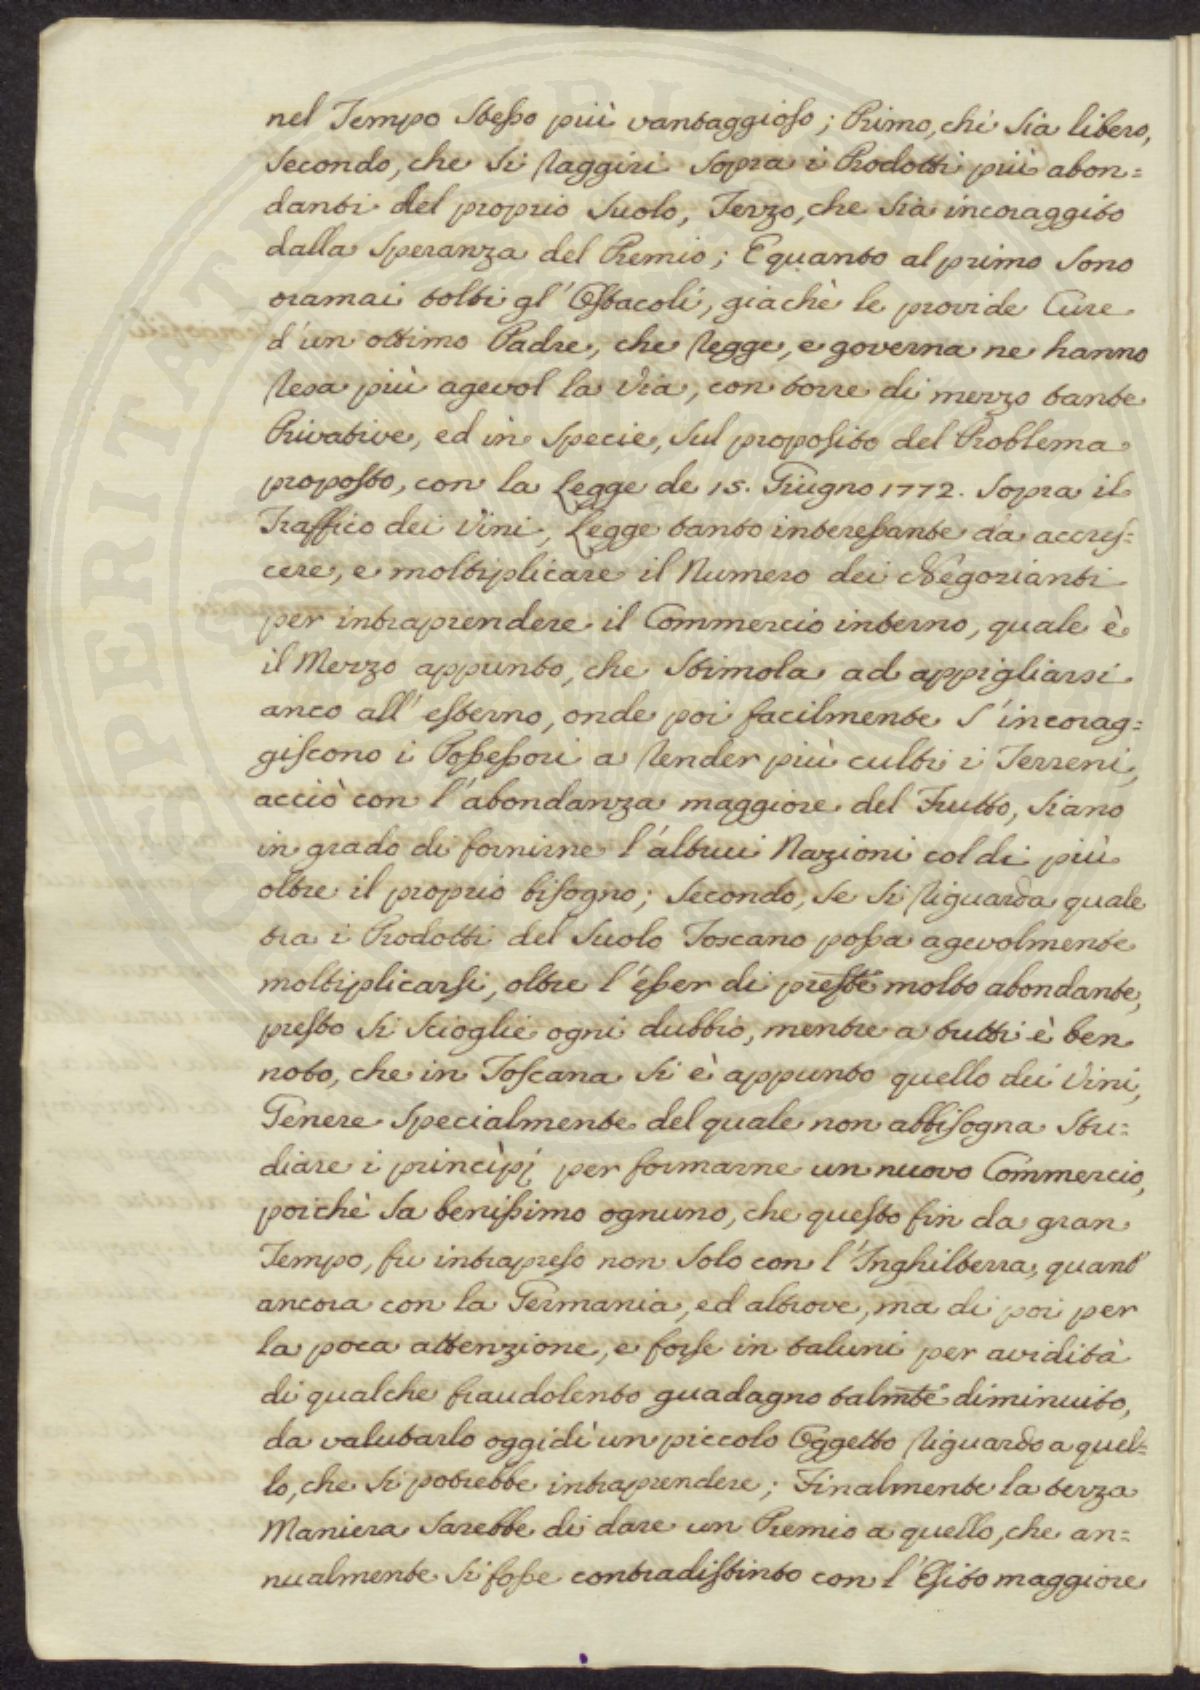 nel Tempo stesso più vantaggioso; Primo, che sia libero,
secondo, che si raggiri sopra i Prodotti più abon=
danti del proprio suolo, Terzo, che sia incoraggito
dalla speranza del Premio; E quanto al primo sono
oramai tolti gl'Ostacoli, giachè le provide Cure
d'un ottimo Padre, che regge, e governa ne hanno
resa più agevol la via, con torre di mezzo tante
Privative, ed in specie, sul proposito del Problema
proposto, con la Legge de 15. Giugno 1772. sopra il
Traffico dei Vini, Legge tanto interessante da accres=
cere, e moltiplicare il Numero dei Negozianti
per intraprendere il Commercio interno, quale è
il Mezzo appunto, che stimola ad appigliarsi
anco all'esterno, onde poi facilmente s'incorag=
giscono i Possessori a render più culti i Terreni,
acciò con l'abondanza maggiore del Frutto, siano
in grado di fornirne l'altrui Nazioni col di più
oltre il proprio bisogno; Secondo, se si riguarda quale
tra i Prodotti del Suolo Toscano possa agevolmente
moltiplicarsi, oltre l'esser di presñte molto abondante,
presto si scioglie ogni dubbio, mentre a tutti è ben
noto, che in Toscana si è appunto quello dei Vini,
Genere specialmente del quale non abbisogna stu=
diare i princìpj per formarne un nuovo Commercio,
poichè sa benissimo ognuno, che questo fin da gran
Tempo, fu intrapreso non solo con l'Inghilterra, quant'
ancora con la Germania, ed altrove, ma di poi per
la poca attenzione, e forse in taluni per avidità
di qualche fraudolento guadagno talmñte diminuito,
da valutarlo oggidì un piccolo Oggetto riguardo a quel=
lo, che si potrebbe intraprendere; Finalmente la terza
Maniera sarebbe di dare un Premio a quello, che an=
nualmente si fosse contradistinto con l'Esito maggiore